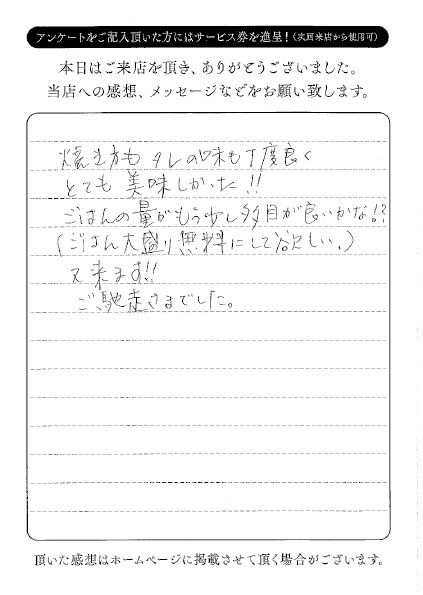 アンケートをご記入頂いた方にはサービス券を進呈！（次回来店から使用可）
本日はご来店を頂き、ありがとうございました。
当店への感想、メッセージなどをお願い致します。
焼き方も タレの味も丁度良く
とても 美味しかった!!
ごはんの量がもう少し多目が良いかな!?
(ごはん大盛り無料にして欲しい。)
又来ます!!
ご馳走さまでした。
頂いた感想はホームページに掲載させて頂く場合がございます。